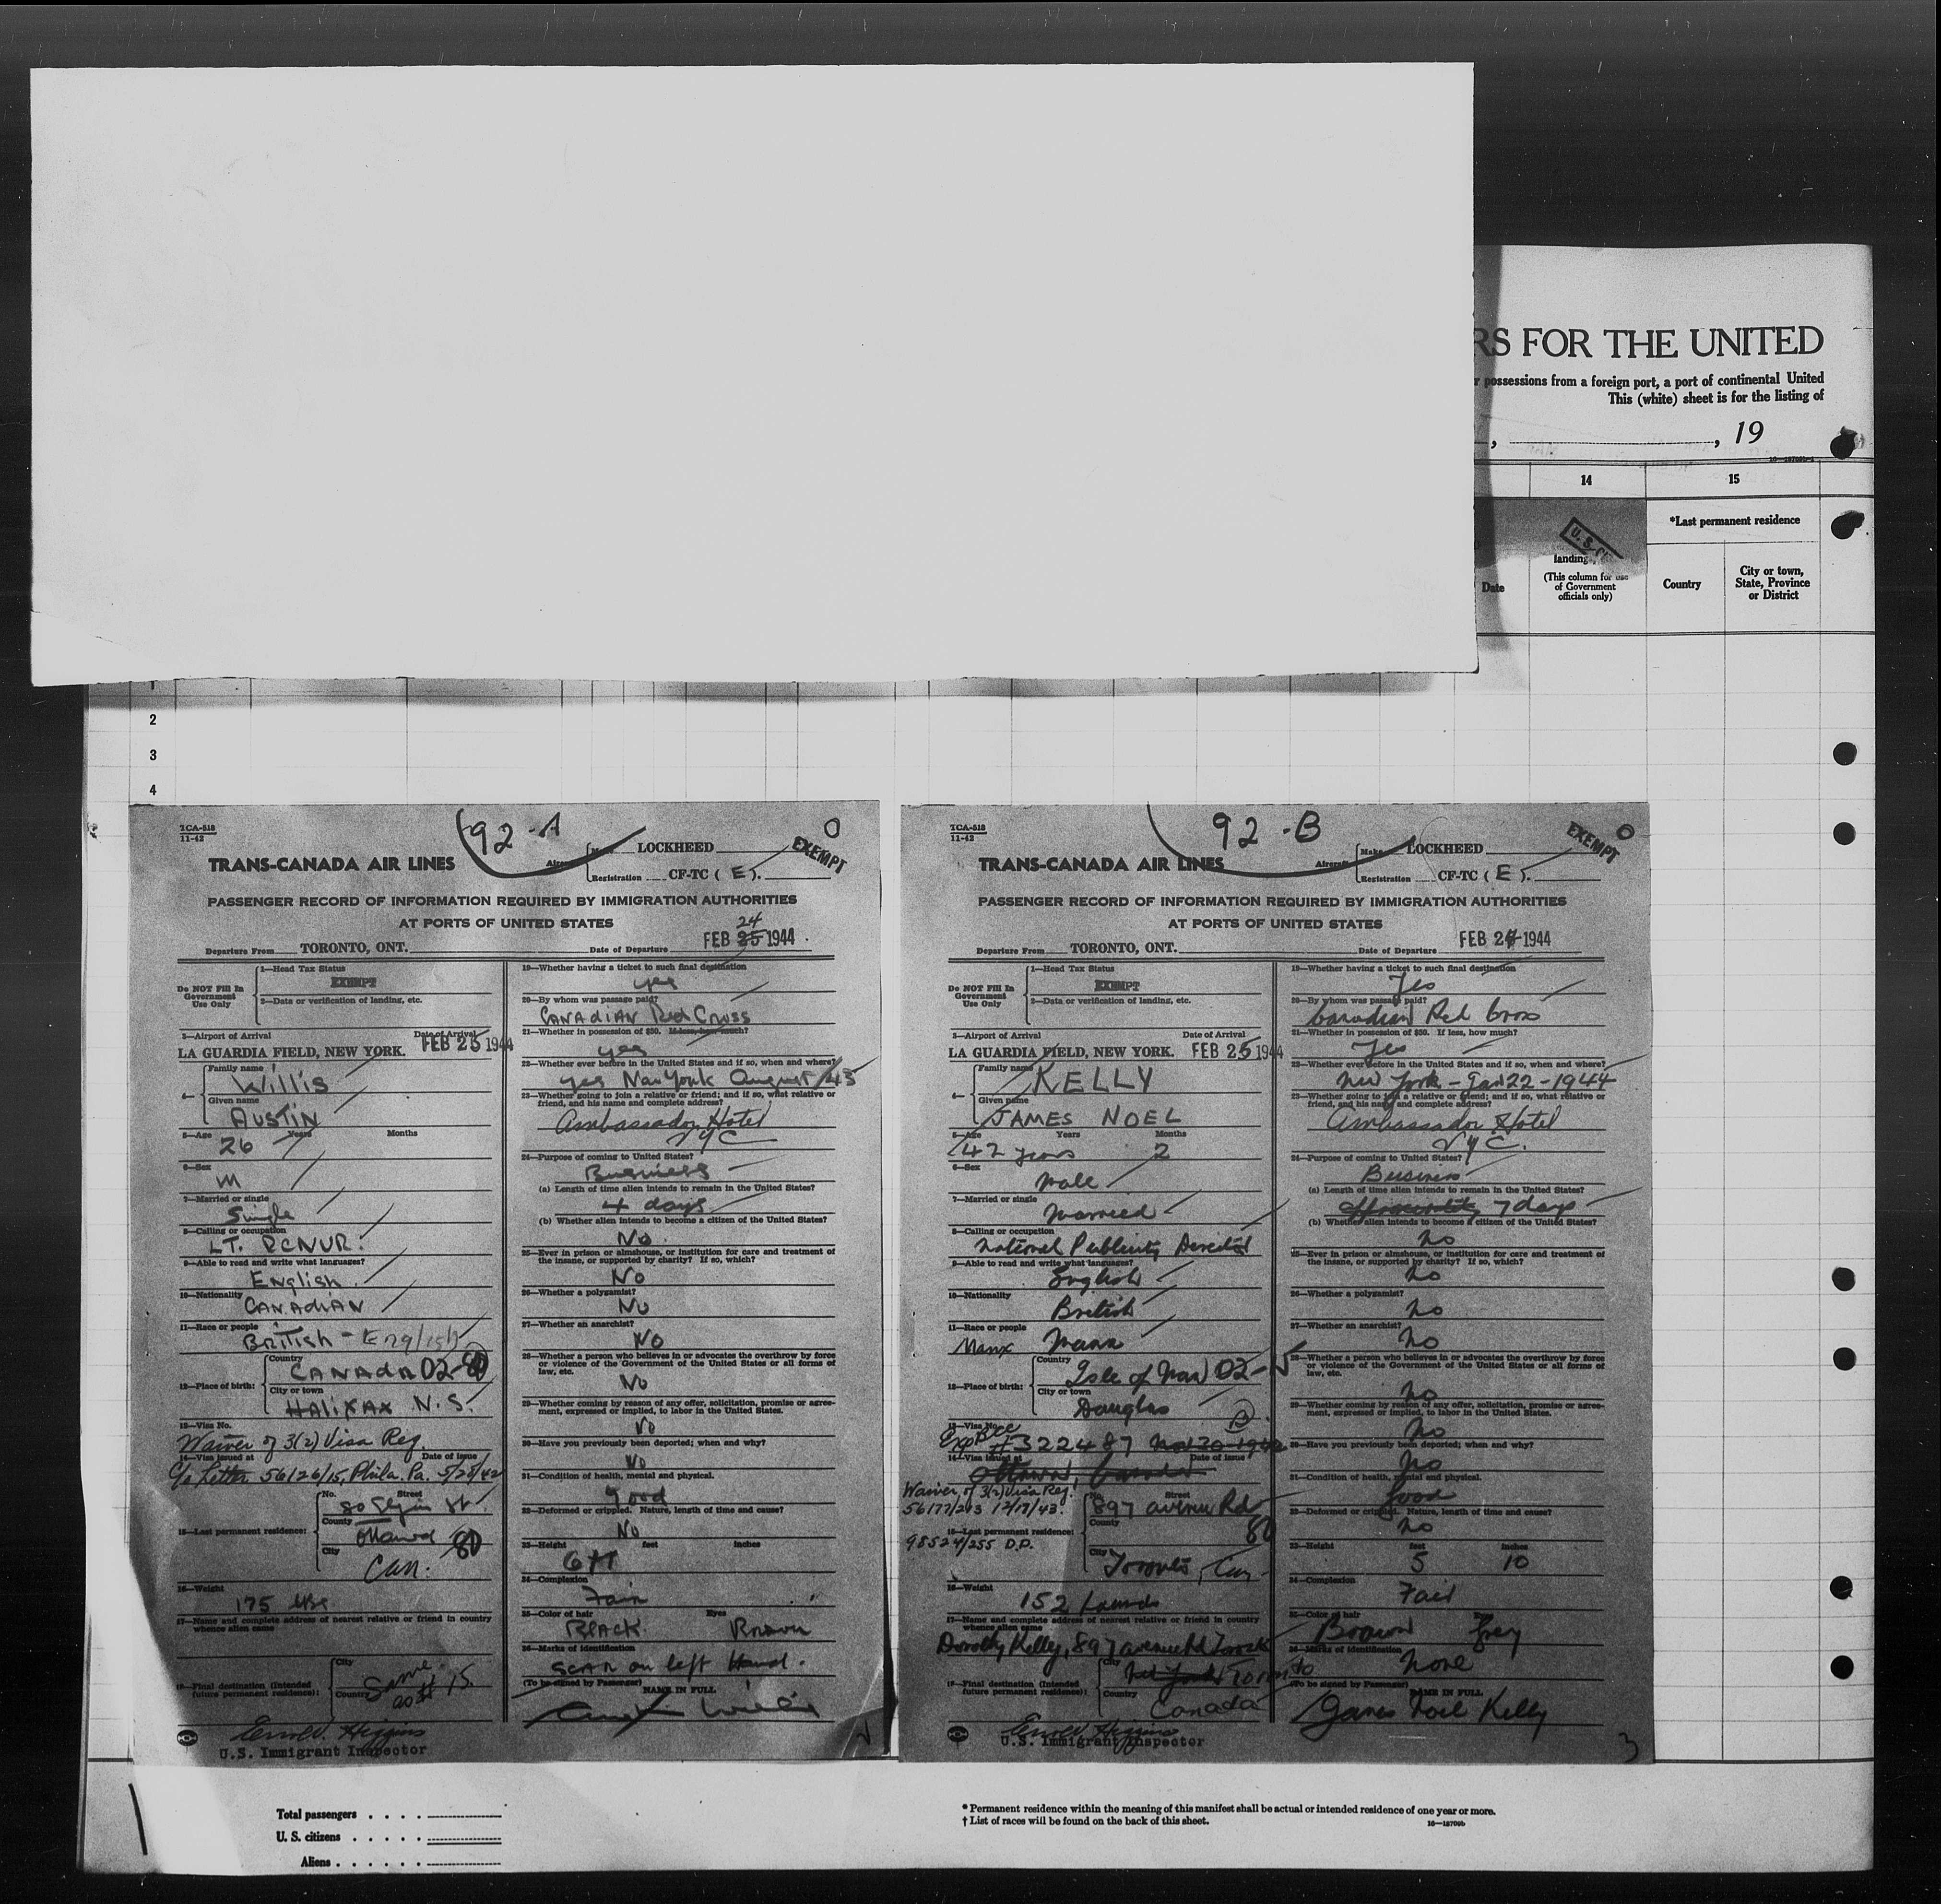 RS FOR THE UNITED
r possessions from a foreign port, a port of continental United
This (white) sheet is for the listing of
, , 19
16—18709b-1
14
15
*Last permanent residence
U. S.
landing
Date
(This column for use
of Government
officials only)
Country
City or town,
State, Province
or District
1
2
3
4
TCA-818
11-42
92-A
O
TRANS-CANADA AIR LINES
Aircraft
Make LOCKHEED
Registration CF-TC ( E ).
EXEMPT
PASSENGER RECORD OF INFORMATION REQUIRED BY IMMIGRATION AUTHORITIES
AT PORTS OF UNITED STATES
Departure From TORONTO, ONT. Date of Departure FEB 25 1944
24
Do NOT Fill In
Government
Use Only
1—Head Tax Status
EXEMPT
2—Data or verification of landing, etc.
3—Airport of Arrival Date of Arrival
LA GUARDIA FIELD, NEW YORK. FEB 25 1944
4—
Family name
Willis
Given name
AUSTIN
5—Age Years Months
26
6—Sex
M
7—Married or single
Single
8—Calling or occupation
LT. RCNVR.
9—Able to read and write what languages?
English
10—Nationality
CANADIAN
11—Race or people
BRITISH - English
12—Place of birth:
Country
CANADA 02-80
City or town
HALIFAX N.S.
13—Visa No.
Waiver of 3(2) Visa Reg.
14—Visa issued at Date of issue
c/o Letter 56126/15, Phila. Pa. 5/28/42
15—Last permanent residence:
No. Street
80 Elgin St
County
Ottawa 80
City
Can.
16—Weight
175 lbs
17—Name and complete address of nearest relative or friend in country
whence alien came
18—Final destination (Intended
future permanent residence):
City
Same
Country
as # 15.
U.S. Immigrant Inspector
19—Whether having a ticket to such final destination
yes
20—By whom was passage paid?
CANADIAN Red Cross
21—Whether in possession of $50. If less, how much?
yes
22—Whether ever before in the United States and if so, when and where?
yes New York August /43
23—Whether going to join a relative or friend; and if so, what relative or
friend, and his name and complete address?
Ambassador Hotel
NYC
24—Purpose of coming to United States?
Business
(a) Length of time alien intends to remain in the United States?
4 days
(b) Whether alien intends to become a citizen of the United States?
No
25—Ever in prison or almshouse, or institution for care and treatment of
the insane, or supported by charity? If so, which?
No
26—Whether a polygamist?
No
27—Whether an anarchist?
No
28—Whether a person who believes in or advocates the overthrow by force
or violence of the Government of the United States or all forms of
law, etc.
No
29—Whether coming by reason of any offer, solicitation, promise or agree-
ment, expressed or implied, to labor in the United States.
No
30—Have you previously been deported; when and why?
No
31—Condition of health, mental and physical.
Good
32—Deformed or crippled. Nature, length of time and cause?
No
33—Height feet inches
6 ft
34—Complexion
Fair
35—Color of hair Eyes
BLACK Brown
36—Marks of identification
SCAR on left Hand.
(To be signed by Passenger) NAME IN FULL
Austin Willis
TCA-818
11-42
92-B
O
TRANS-CANADA AIR LINES
Aircraft
Make LOCKHEED
Registration CF-TC ( E ).
EXEMPT
PASSENGER RECORD OF INFORMATION REQUIRED BY IMMIGRATION AUTHORITIES
AT PORTS OF UNITED STATES
Departure From TORONTO, ONT. Date of Departure FEB 24 1944
Do NOT Fill In
Government
Use Only
1—Head Tax Status
EXEMPT
2—Data or verification of landing, etc.
3—Airport of Arrival Date of Arrival
LA GUARDIA FIELD, NEW YORK. FEB 25 1944
4—
Family name
KELLY
Given name
JAMES NOEL
5—Age Years Months
42 years 2
6—Sex
Male
7—Married or single
Married
8—Calling or occupation
National Publicity Director
9—Able to read and write what languages?
English
10—Nationality
British
11—Race or people
Manx Manx
12—Place of birth:
Country
Isle of Man 02-
City or town
Douglas
13—Visa No.
#322487 Nov 20-1942
14—Visa issued at Date of issue
Ottawa, Canada
Waiver of 3(2) Visa Reg.
56177/213 12/17/43.
98524/255 D.P.
15—Last permanent residence:
No. Street
897 Avenue Rd
County
80
City
Toronto, Can.
16—Weight
152 pounds
17—Name and complete address of nearest relative or friend in country
whence alien came
Dorothy Kelly, 897 Avenue Rd
18—Final destination (Intended
future permanent residence):
City
New York Toronto
Country
Canada
U.S. Immigrant Inspector
19—Whether having a ticket to such final destination
Yes
20—By whom was passage paid?
Canadian Red Cross
21—Whether in possession of $50. If less, how much?
Yes
22—Whether ever before in the United States and if so, when and where?
New York - Jan 22 - 1944
23—Whether going to join a relative or friend; and if so, what relative or
friend, and his name and complete address?
Ambassador Hotel
NYC.
24—Purpose of coming to United States?
Business
(a) Length of time alien intends to remain in the United States?
7 days
(b) Whether alien intends to become a citizen of the United States?
No
25—Ever in prison or almshouse, or institution for care and treatment of
the insane, or supported by charity? If so, which?
No
26—Whether a polygamist?
No
27—Whether an anarchist?
No
28—Whether a person who believes in or advocates the overthrow by force
or violence of the Government of the United States or all forms of
law, etc.
No
29—Whether coming by reason of any offer, solicitation, promise or agree-
ment, expressed or implied, to labor in the United States.
No
30—Have you previously been deported; when and why?
No
31—Condition of health, mental and physical.
Good
32—Deformed or crippled. Nature, length of time and cause?
No
33—Height feet inches
5 10
34—Complexion
Fair
35—Color of hair Eyes
Brown Grey
36—Marks of identification
None
(To be signed by Passenger) NAME IN FULL
James Noel Kelly
3
Total passengers . . . .
U. S. citizens . . . . .
Aliens . . . . . .
* Permanent residence within the meaning of this manifest shall be actual or intended residence of one year or more.
† List of races will be found on the back of this sheet.
16—18709b